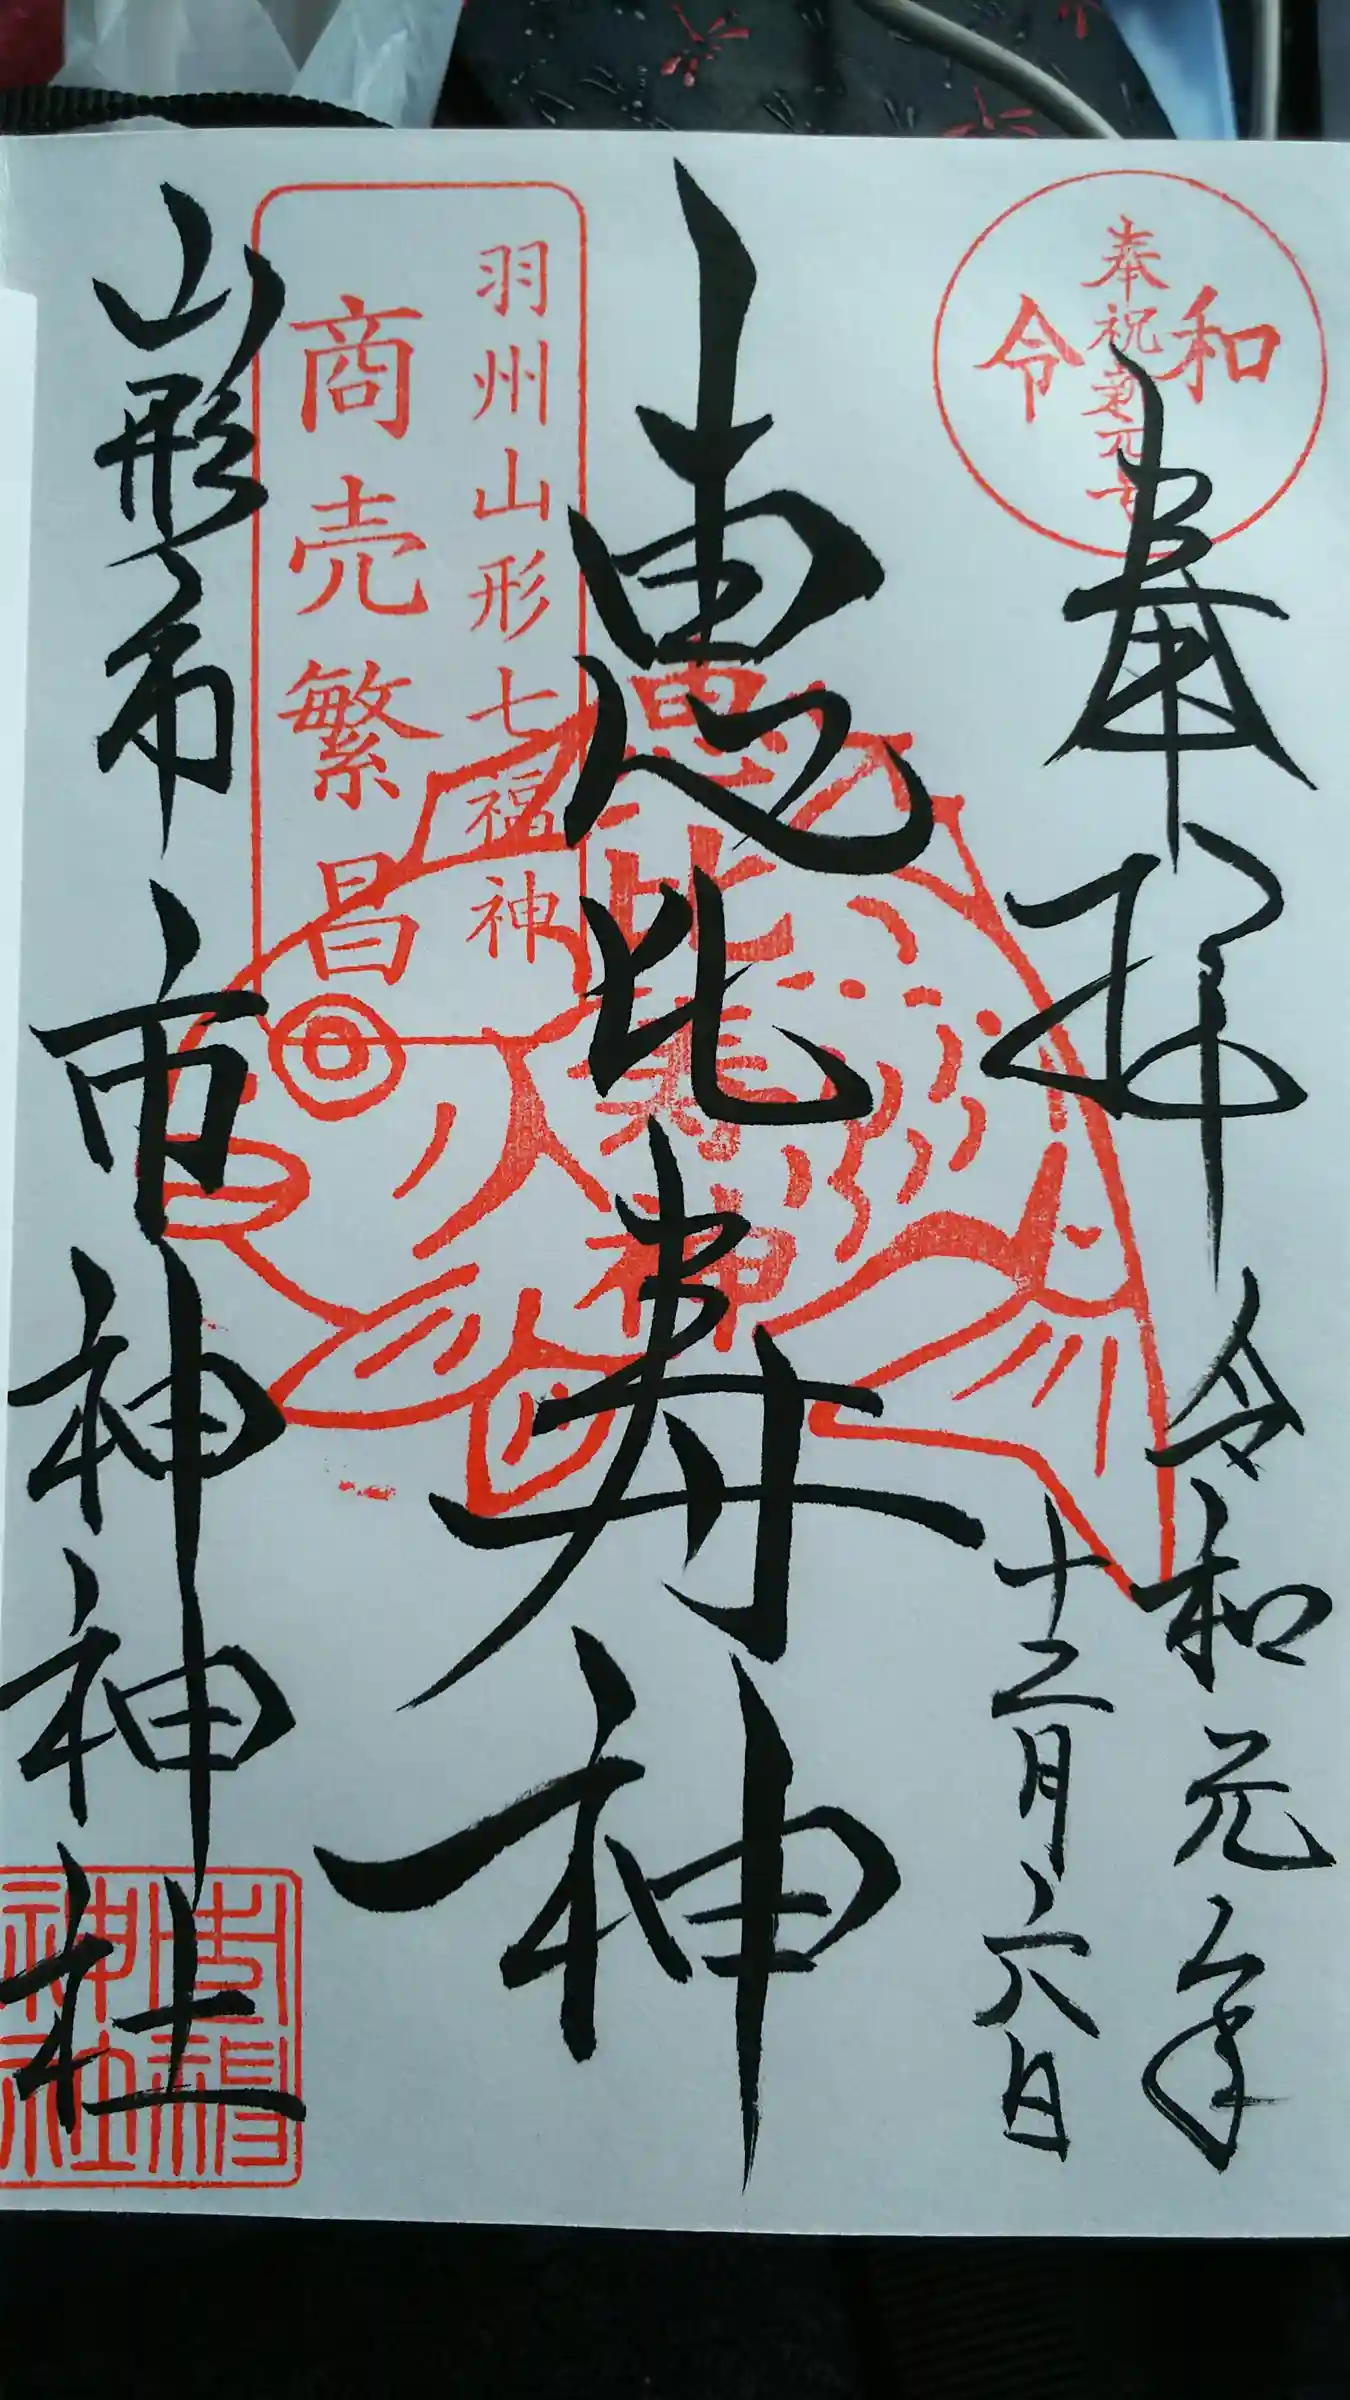 奉祝
令和
奉拝
令和元年
十二月六日
恵比寿神
恵比寿神
羽州山形七福神
商売繁昌
山形市
市神神社